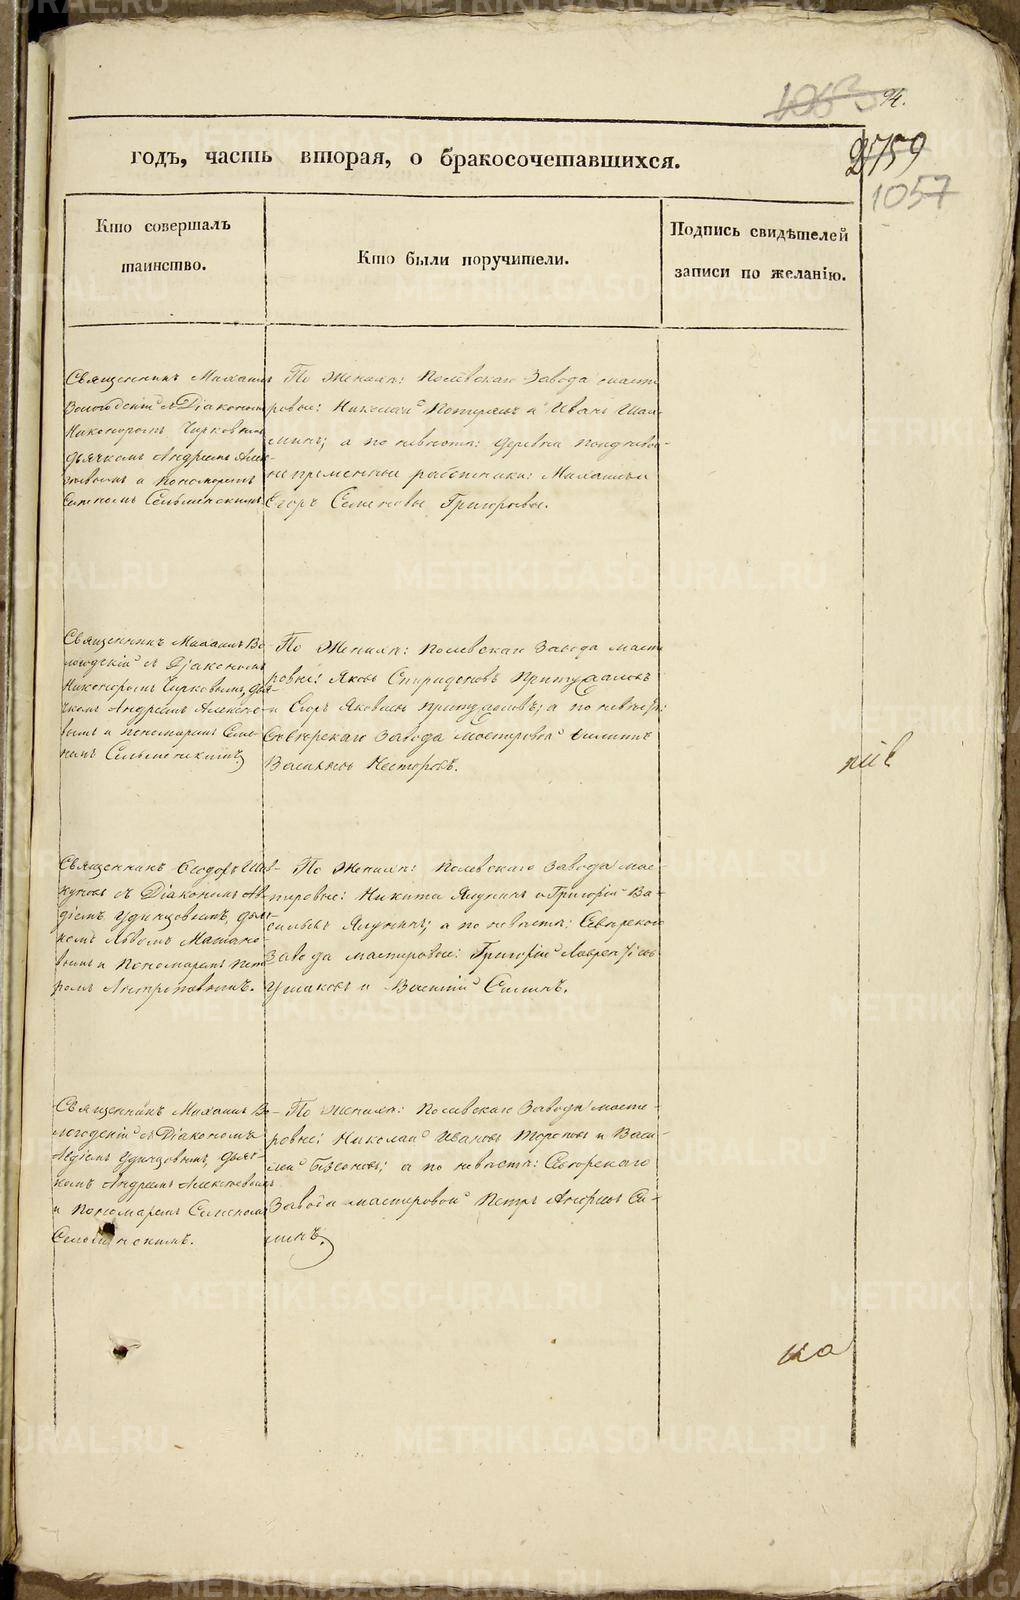 1063 94.
годъ, часть вторая, о бракосочетавшихся.
2759
1057
Кто совершалъ
таинство.
Кто были поручители.
Подпись свидѣтелей
записи по желанію.
Священникъ Михаилъ
Вологодскій съ Діакономъ
Никоноромъ Чирковымъ
дьячкомъ Андреемъ Алек-
ѣевымъ и Пономаремъ
Семеномъ Сельменскимъ
По Женихѣ: Полевскаго Завода масте
ровые: Николай и Иванъ Шал-
минъ; а по невѣстѣ: деревни
непременные работники: Михаилъ и
Егоръ Семеновы Григорьевы.
Священникъ Михаилъ Во-
логодскій съ Діакономъ
Никоноромъ Чирковымъ, дья-
чкомъ Андреемъ Алексѣе-
вымъ и пономаремъ Семе-
номъ Сельменскимъ
По Женихѣ: Полевскаго Завода масте
ровые: Яковъ Спиридоновъ Притупаловъ
и Егоръ Яковлевъ Притупаловъ; а по невѣстѣ:
Сѣверскаго Завода мастеровой Филиппъ
Васильевъ Несторовъ.
Священникъ Ѳеодоръ
съ Діакономъ Ав-
діемъ Удинцовымъ, дьяч-
комъ Львомъ
вымъ и Пономаремъ Пет
ромъ
По Женихѣ: Полевскаго Завода мас-
теровые: Никита Ялунинъ и Григорій Ва-
сильевъ Ялунинъ; а по невѣстѣ: Сѣверскаго
Завода мастеровые: Григорій Лаврентьевъ
Ушаковъ и Василій Силинъ.
Священникъ Михаилъ Во-
логодскій съ Діакономъ
Авдіемъ Удинцовымъ, дьяч-
комъ Андреемъ Алексѣевымъ
и Пономаремъ Семеномъ
Сельменскимъ.
По Женихѣ: Полевскаго Завода масте-
ровые: Николай Ивановъ и Васи-
лій а по невѣстѣ: Сѣверскаго
Завода мастеровой Петръ Андреевъ Си-
линъ.
METRIKI.GASO-URAL.RU